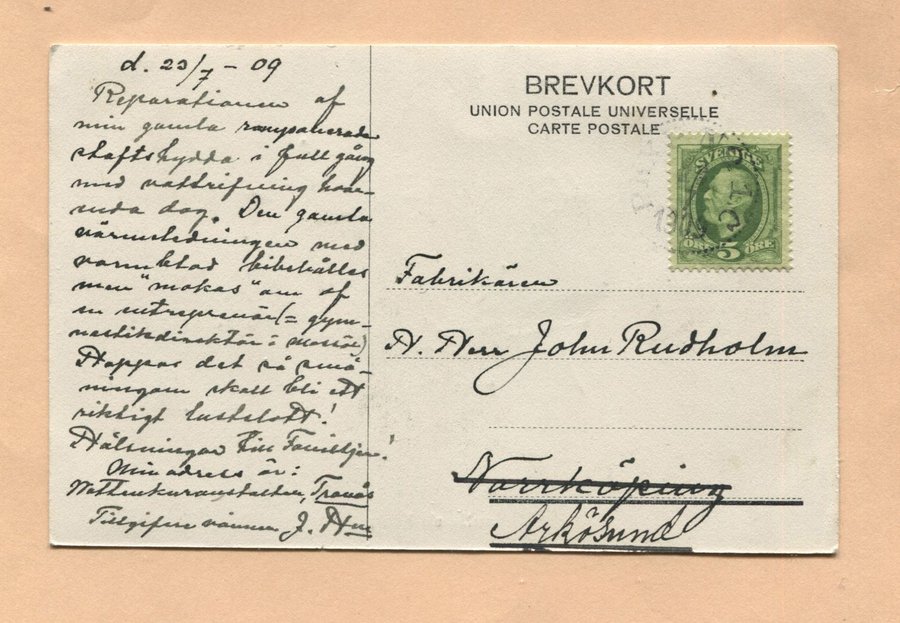 d. 23/7 - 09
Reparationen af
min gamla
skaftshydda i full gång
med vattrifning hvar-
enda dag. Den gamla
värmeledningen med
varmblod bibehålles
men "mokas" om af
en entreprenör (= gym-
nastikdirektör & massör)
Hoppas det så små-
ningom skall bli ett
riktigt lustslott!
Hälsningar till Familjen!
Min adress är:
Vattenkuranstalten, Tranås
Tillgifne vännen J.
BREVKORT
UNION POSTALE UNIVERSELLE
CARTE POSTALE
SVERIGE
ÖRE 5 ÖRE
Fabrikören
H. Herr John Rudholm
Norrköping
Arkösund